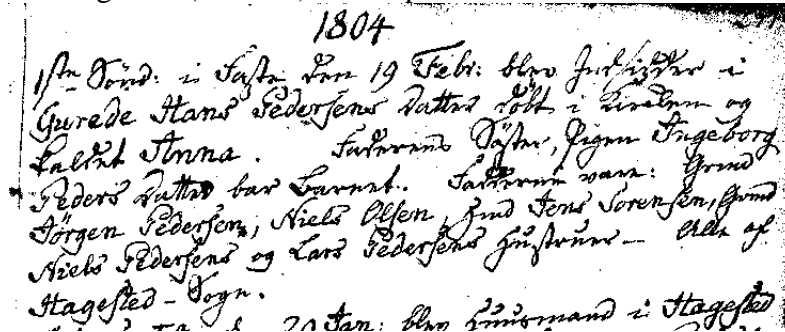 1804
1ste Sönd: i Faste den 19 Febr: blev Indsidder i
Gurede Hans Pedersens Datter döbt i Kirken og
kaldet Anna. Faderens Söster, Pigen Ingeborg
Peders Datter bar Barnet. Fadderne vare: Grmd
Jörgen Pedersen, Niels Olsen, Hmd Jens Sorensen, Grmd
Niels Pedersens og Lars Pedersens Hustruer - Alle af
Hagested - Sogn.
20 Jan: blev Huusmand i Hagested